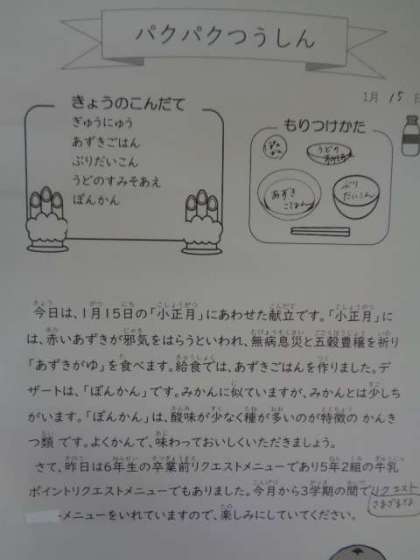 パクパクつうしん
1月 15 日
きょうのこんだて
ぎゅうにゅう
あずきごはん
ぶりだいこん
うどのすみそあえ
ぽんかん
もりつけかた
ぽん
かん
うどの
あずき
ごはん
ぶり
だいこん
今日は、1月15日の「小正月」にあわせた献立です。「小正月」に
は、赤いあずきが邪気をはらうといわれ、無病息災と五穀豊穣を祈り
「あずきがゆ」を食べます。給食では、あずきごはんを作りました。デ
ザートは、「ぽんかん」です。みかんに似ていますが、みかんとは少しち
がいます。「ぽんかん」は、酸味が少なく種が多いのが特徴の かんき
つ類 です。よくかんで、味わっておいしくいただきましょう。
さて、昨日は6年生の卒業前リクエストメニューであり5年2組の牛乳
ポイントリクエストメニューでもありました。今月から3学期の間でリクエスト
さまざまな
メニューをいれていますので、楽しみにしていてください。